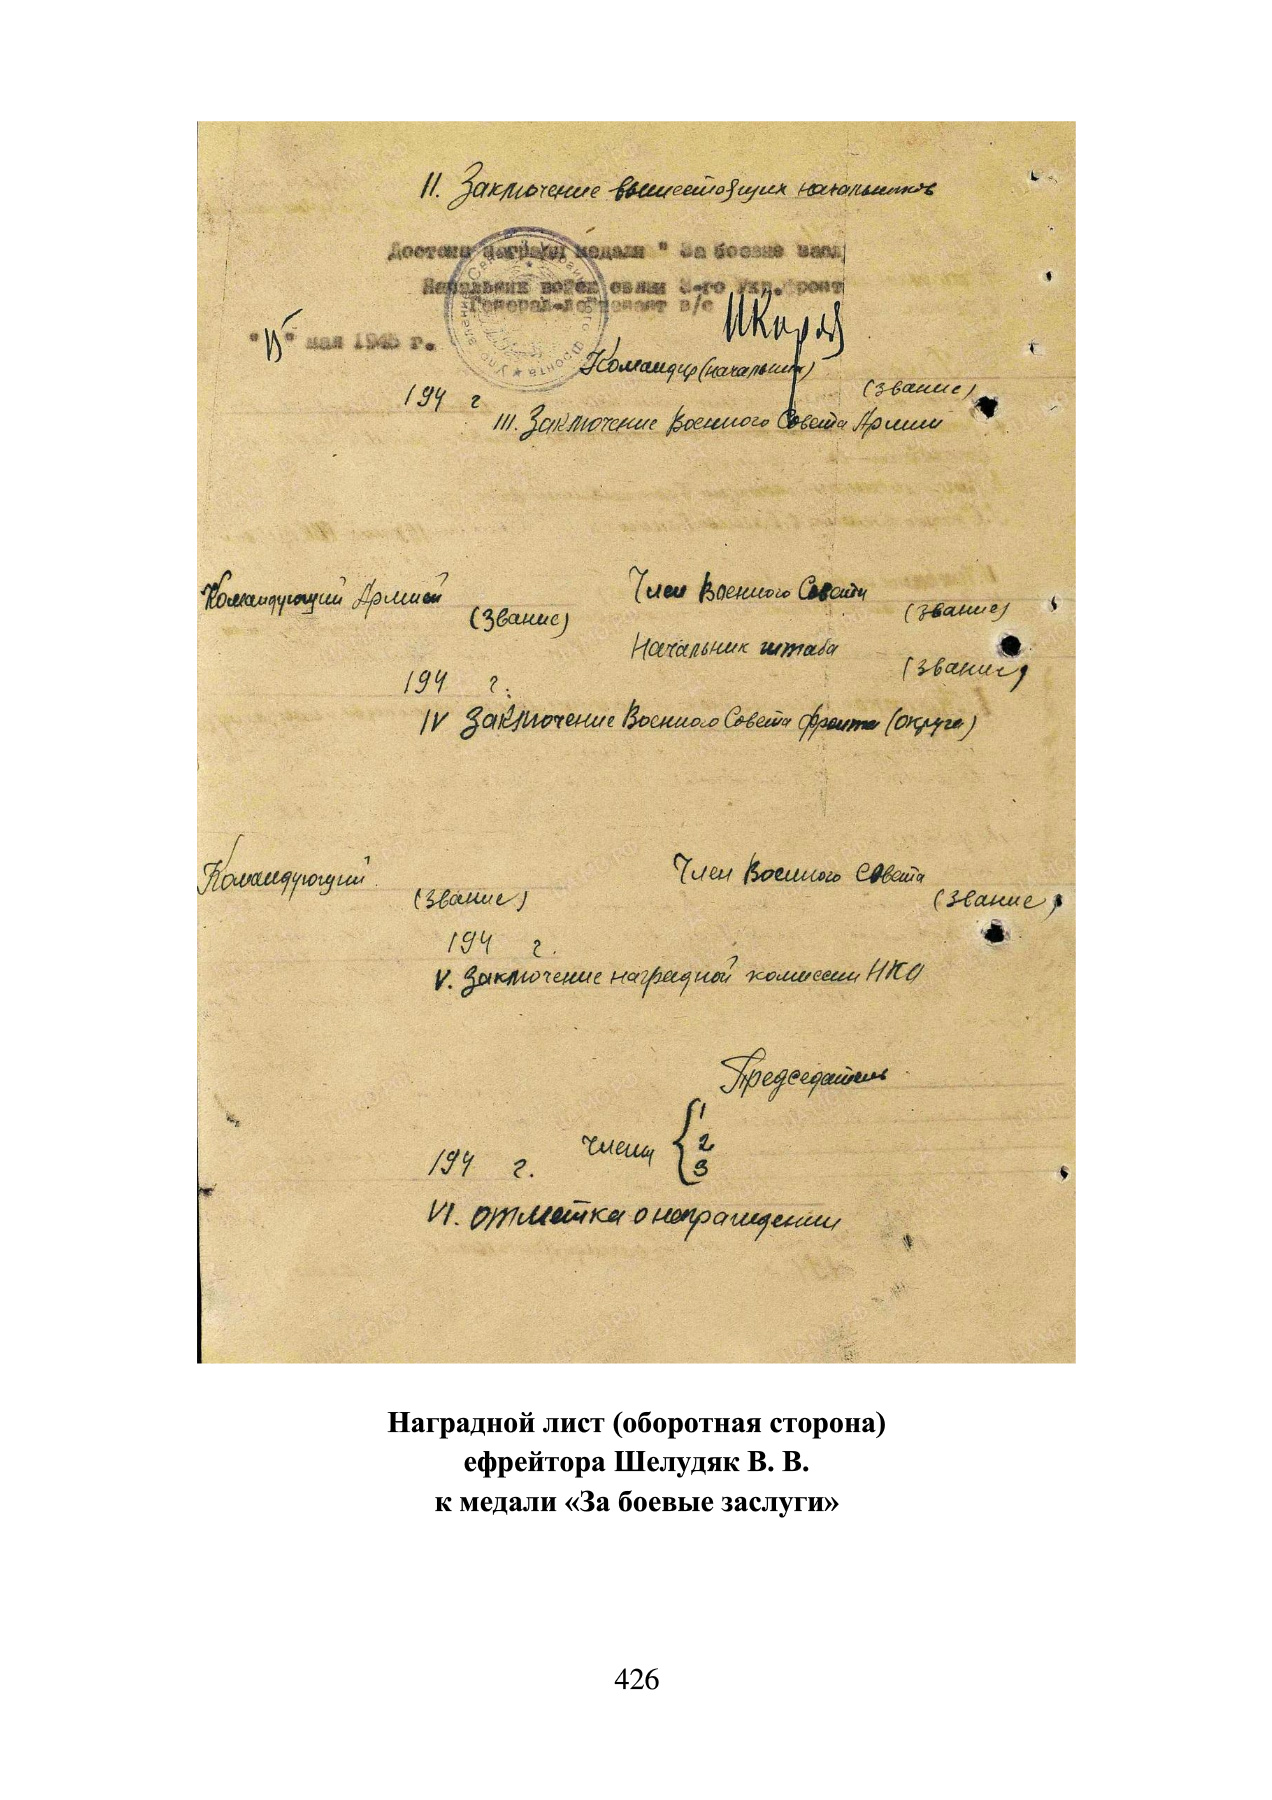 II. Заключение вышестоящих начальников
Достоин награды медали " За боевые засл
Начальник войск связи 3-го Укр.фронт
Генерал-лейтенант в/с
" 15 " мая 1945 г.
Командир (начальник)
(звание)
194 г
III. Заключение Военного Совета Армии
Командующий Армией
(звание)
Член Военного Совета
(звание)
Начальник штаба
(звание)
194 г.
IV Заключение Военного Совета фронта (округа)
Командующий
(звание)
Член Военного Совета
(звание)
194 г.
V. Заключение наградной комиссии НКО
Председатель
194 г. члены { 1
2
3
VI. отметка о награждении
Наградной лист (оборотная сторона)
ефрейтора Шелудяк В. В.
к медали «За боевые заслуги»
426